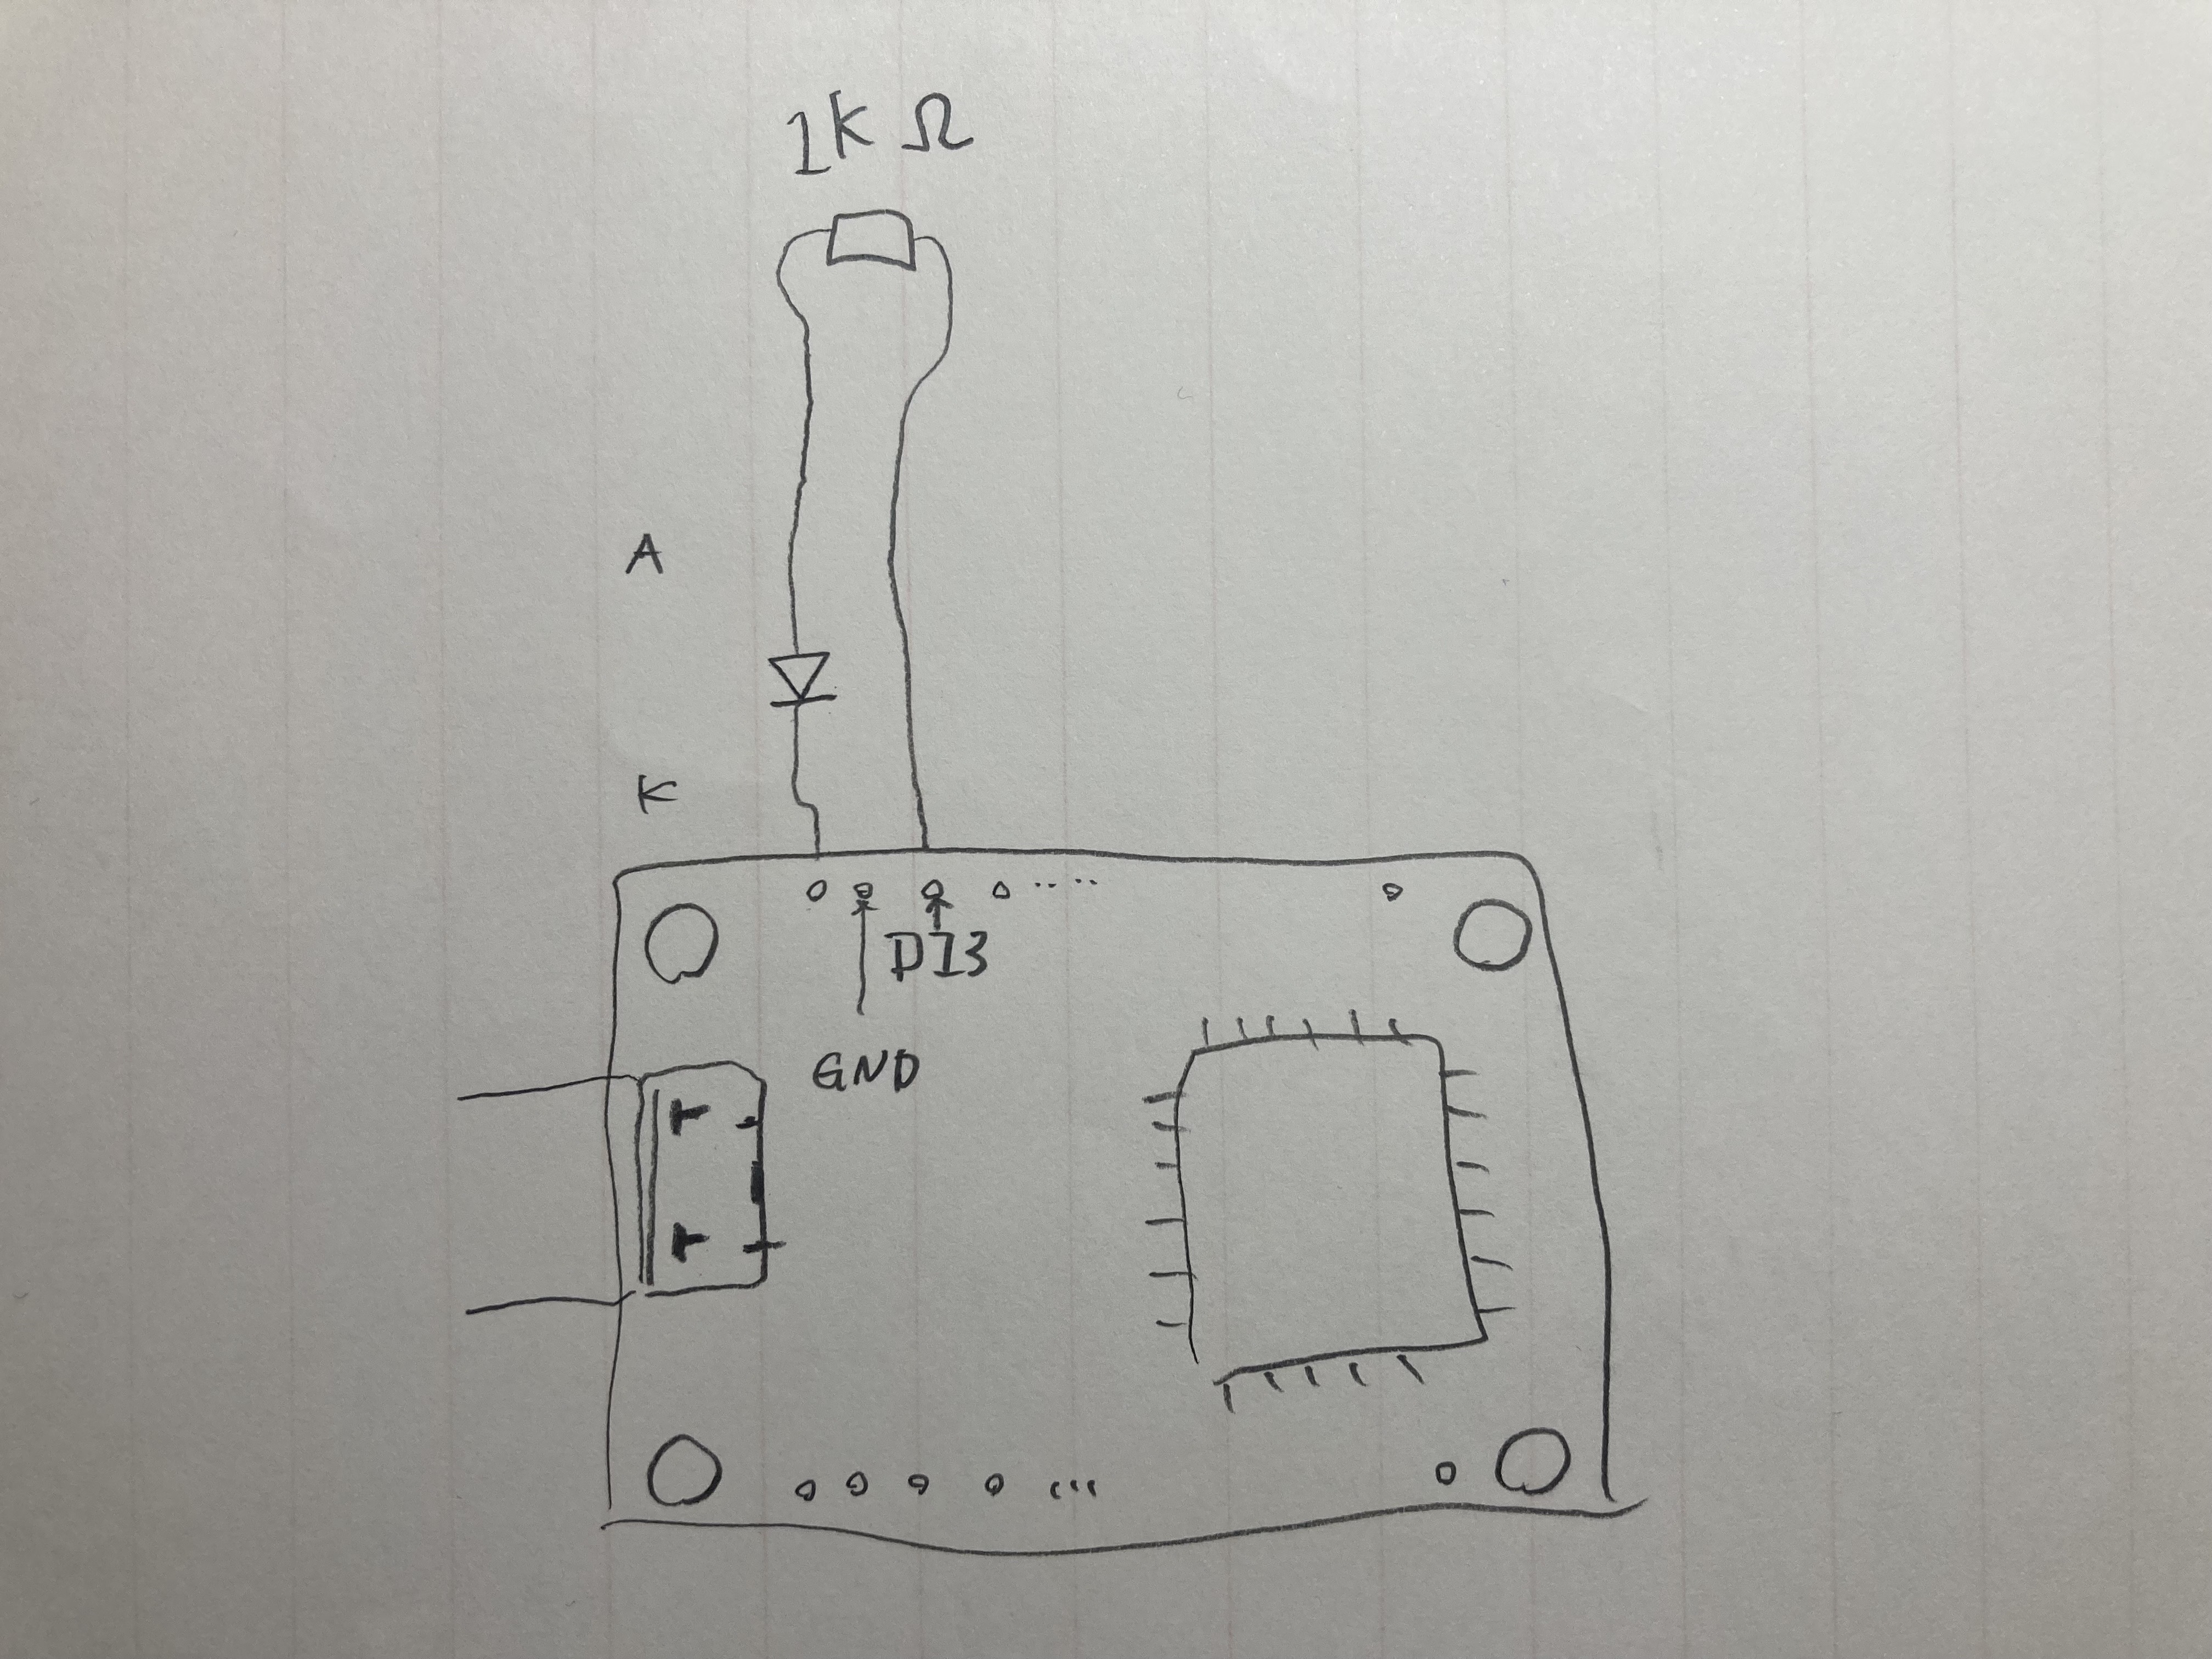 1K Ω
A
K
D13
GND